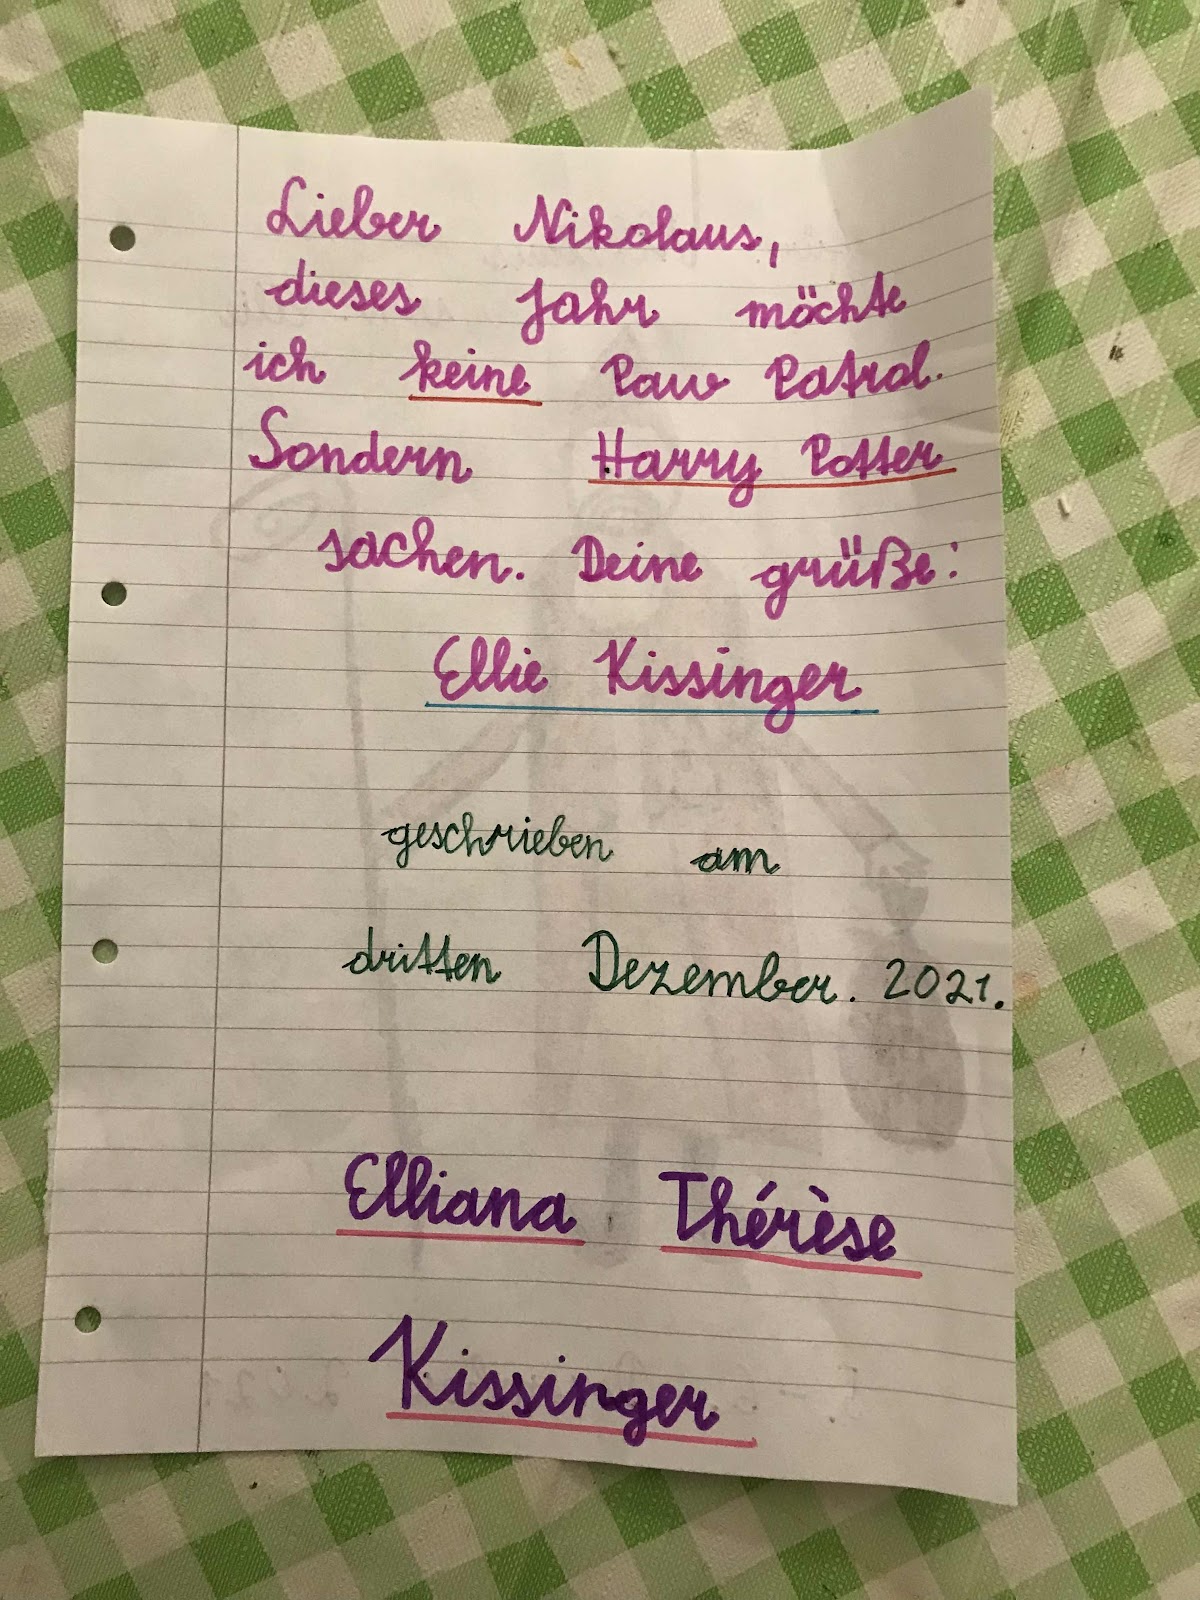 Lieber Nikolaus,
dieses Jahr möchte
ich keine Paw Patrol.
Sondern Harry Potter
sachen. Deine grüße:
Ellie Kissinger
geschrieben am
dritten Dezember. 2021.
Elliana Thérèse
Kissinger